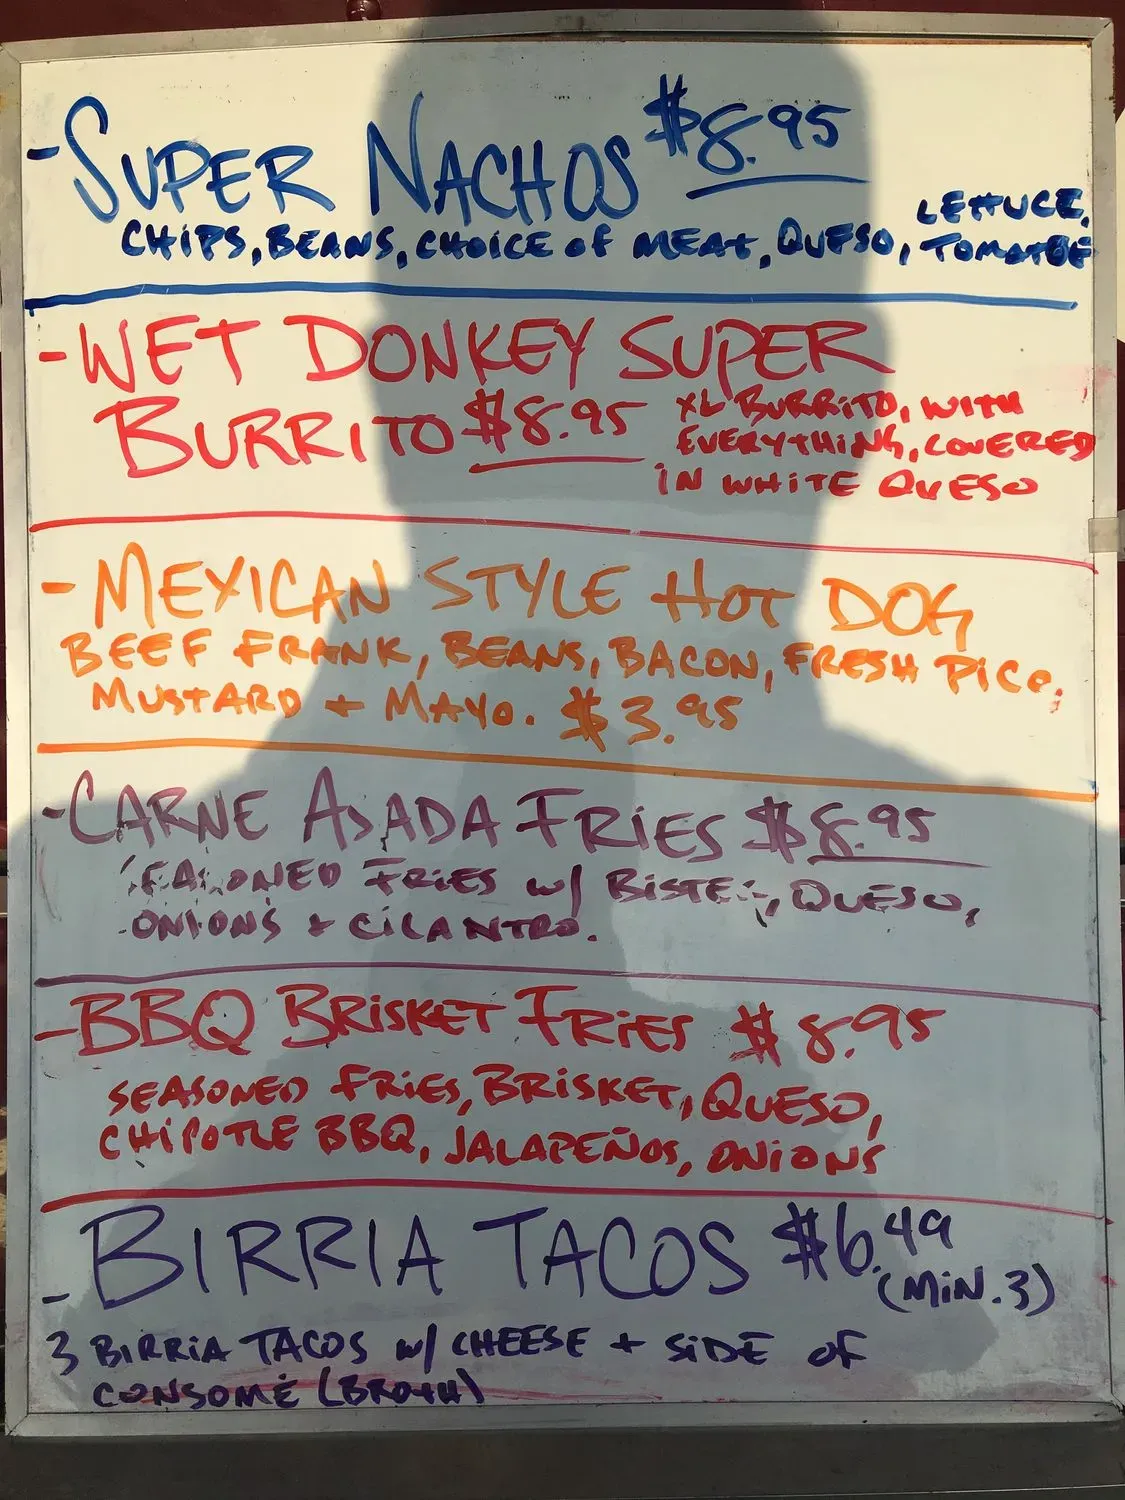 - SUPER NACHOS $8.95
CHIPS, BEANS, CHOICE OF MEAT, QUESO, LETTUCE, TOMATOE
- WET DONKEY SUPER
BURRITO $8.95
XL BURRITO, WITH
EVERYTHING, COVERED
IN WHITE QUESO
- MEXICAN STYLE HOT DOG
BEEF FRANK, BEANS, BACON, FRESH PICO,
MUSTARD + MAYO. $3.95
- CARNE ASADA FRIES $8.95
SEASONED FRIES W/ BISTEC, QUESO,
ONIONS + CILANTRO.
- BBQ BRISKET FRIES $8.95
SEASONED FRIES, BRISKET, QUESO,
CHIPOTLE BBQ, JALAPEÑOS, ONIONS
- BIRRIA TACOS $6.49
(MIN. 3)
3 BIRRIA TACOS W/ CHEESE + SIDE OF
CONSOMÉ (BROTH)